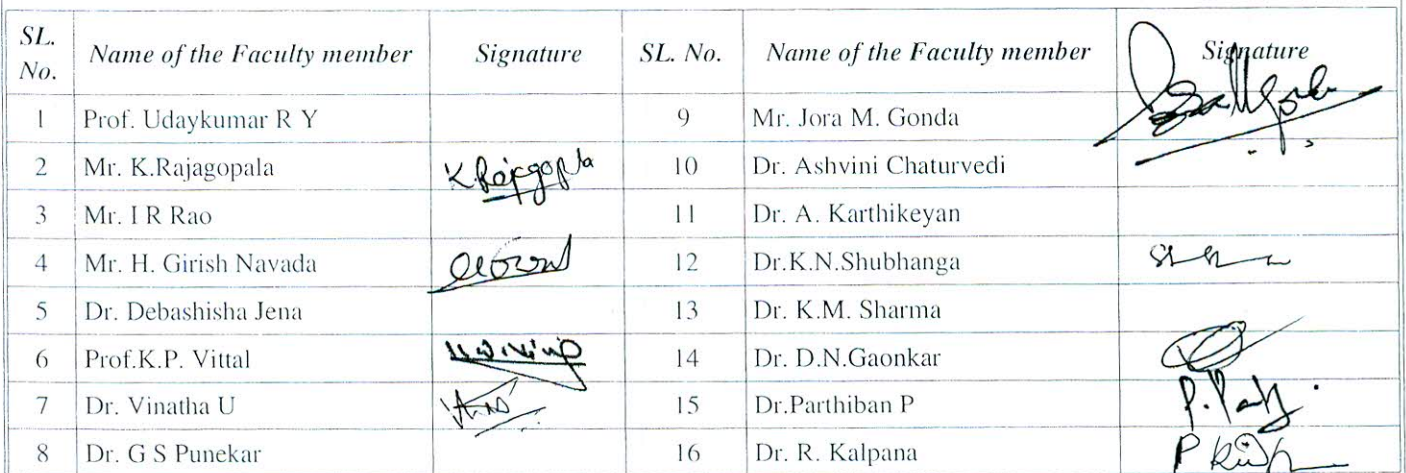 SL. No. Name of the Faculty member Signature SL. No. Name of the Faculty member Signature
1 Prof. Udaykumar R Y 9 Mr. Jora M. Gonda
2 Mr. K.Rajagopala K.Rajagopala 10 Dr. Ashvini Chaturvedi
3 Mr. I R Rao 11 Dr. A. Karthikeyan
4 Mr. H. Girish Navada 12 Dr.K.N.Shubhanga
5 Dr. Debashisha Jena 13 Dr. K.M. Sharma
6 Prof.K.P. Vittal 14 Dr. D.N.Gaonkar
7 Dr. Vinatha U 15 Dr.Parthiban P
8 Dr. G S Punekar 16 Dr. R. Kalpana